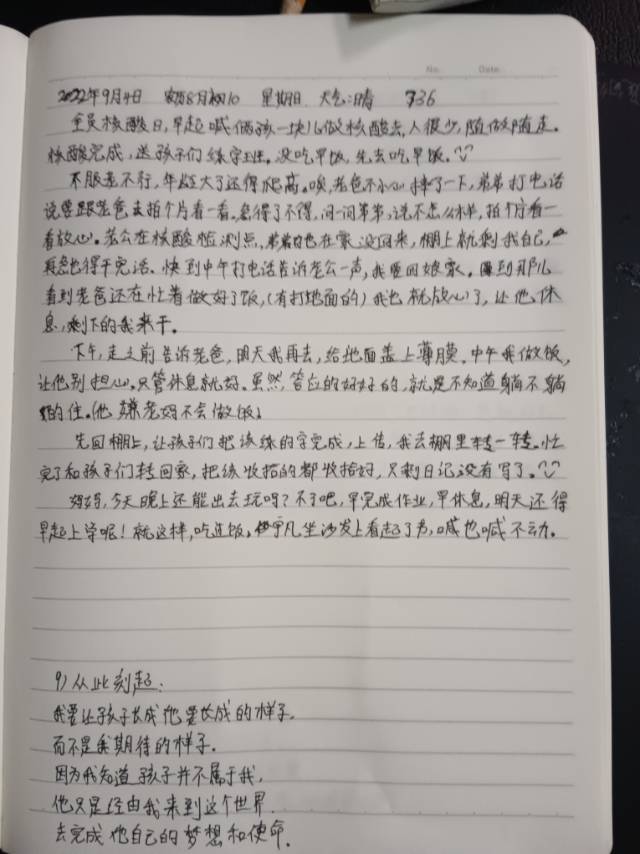 No. Date.
2022年9月4日 农历8月初10 星期日 天气:晴 736
全员核酸日,早起喊俩孩一块儿做核酸去,人很少,随做随走。
核酸完成,送孩子们练字班。没吃早饭,先去吃早饭。
不服老不行,年龄大了还得爬高。唉,老爸不小心摔了一下,弟弟打电话
说要跟老爸去拍个片看一看。急得了不得,问一问弟弟,说不怎么样,拍个片看一
看放心。老公在核酸检测点,弟弟也在家没回来,棚上就剩我自己,
再急也得干完活。快到中午打电话告诉老公一声,我要回娘家。回到那儿
看到老爸还在忙着做好了饭,(有打地面的)我也就放心了,让他休
息,剩下的我来干。
下午,走之前告诉老爸,明天我再去,给地面盖上薄膜,中午我做饭,
让他别担心。只管休息就好。虽然,答应的好好的,就是不知道躺不躺
的住。(他嫌老妈不会做饭)
先回棚上,让孩子们把该练的字完成,上传,我去棚里转一转。忙
完了和孩子们转回家,把该收拾的都收拾好,只剩日记没有写了。
妈妈,今天晚上还能出去玩吗?不了吧,早完成作业,早休息,明天还得
早起上学呢!就这样,吃过饭,宇凡坐沙发上看起了书,喊也喊不动。
9)从此刻起:
我要让孩子长成他要长成的样子,
而不是我期待的样子。
因为我知道孩子并不属于我,
他只是经由我来到这个世界
去完成他自己的梦想和使命.